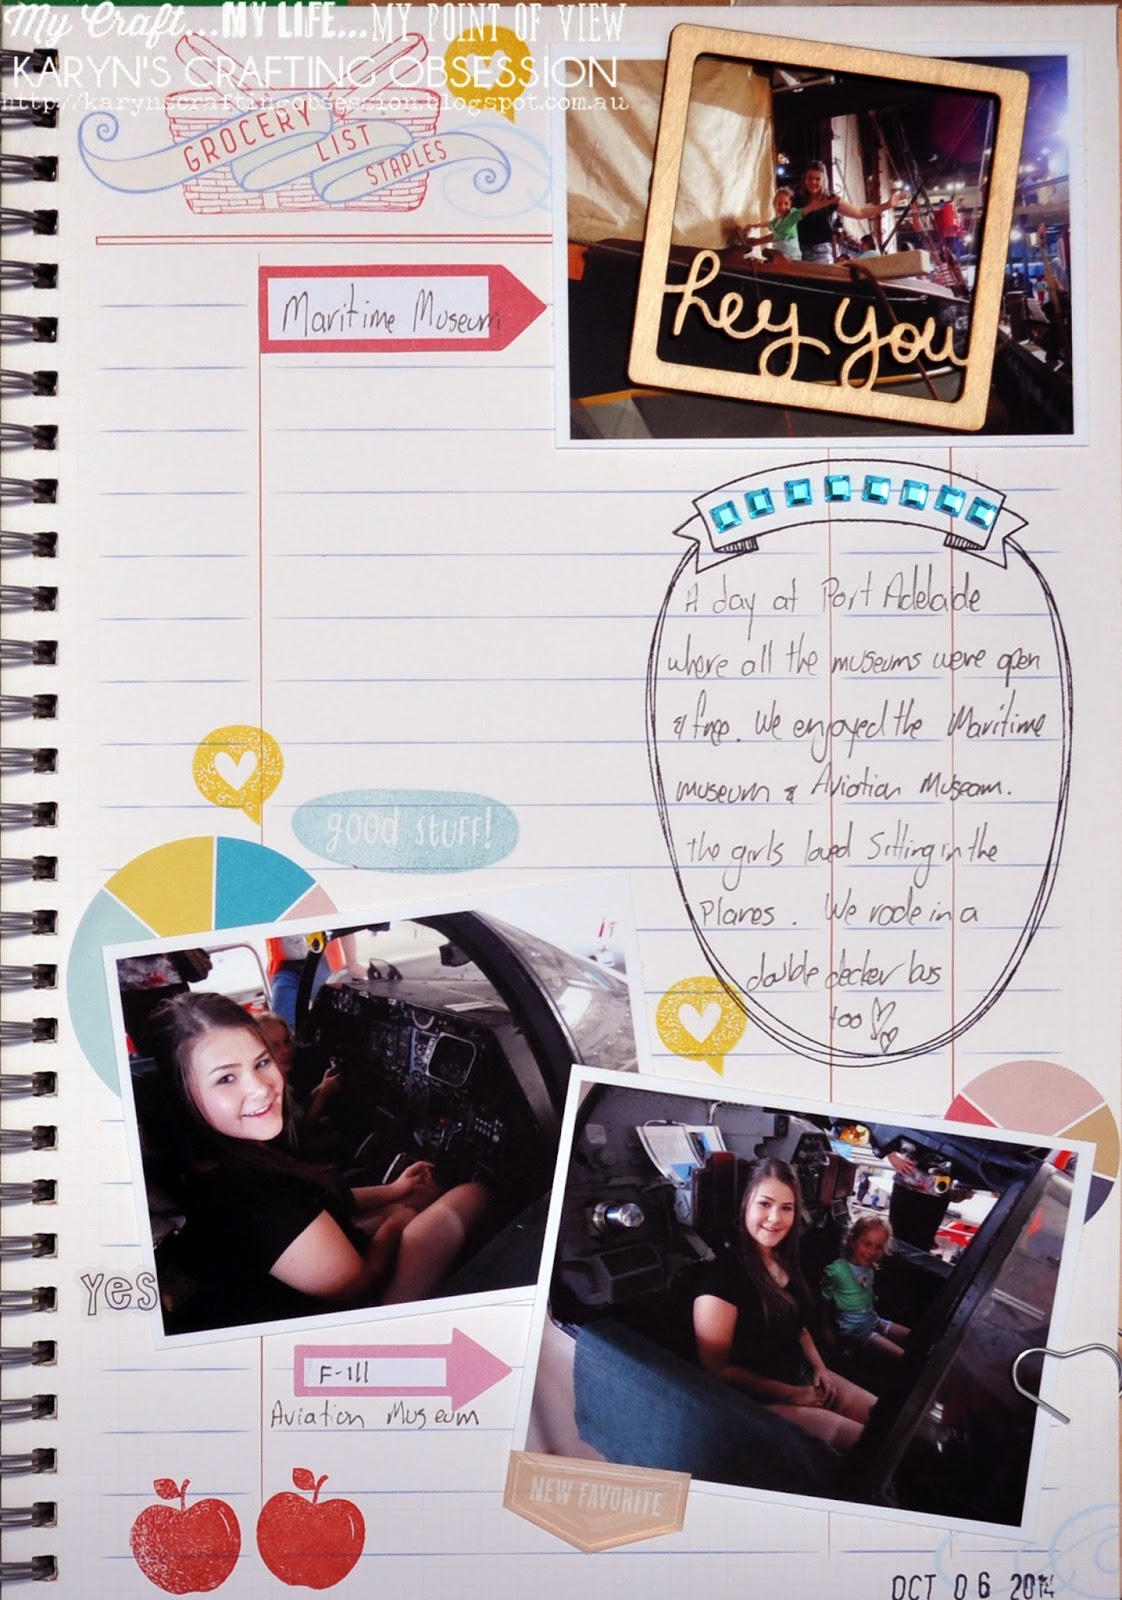 My Craft...MY LIFE...MY POINT OF VIEW
KARYN'S CRAFTING OBSESSION
http://karynscraftingobsession.blogspot.com.au
GROCERY
LIST
STAPLES
Maritime Museum
hey you
A day at Port Adelaide
where all the museums were open
& free. We enjoyed the Maritime
museum & Aviation Museum.
the girls loved Sitting in the
Planes. We rode in a
double decker bus
too
good stuff!
yes
F-111
Aviation Museum
NEW FAVORITE
OCT 06 2014